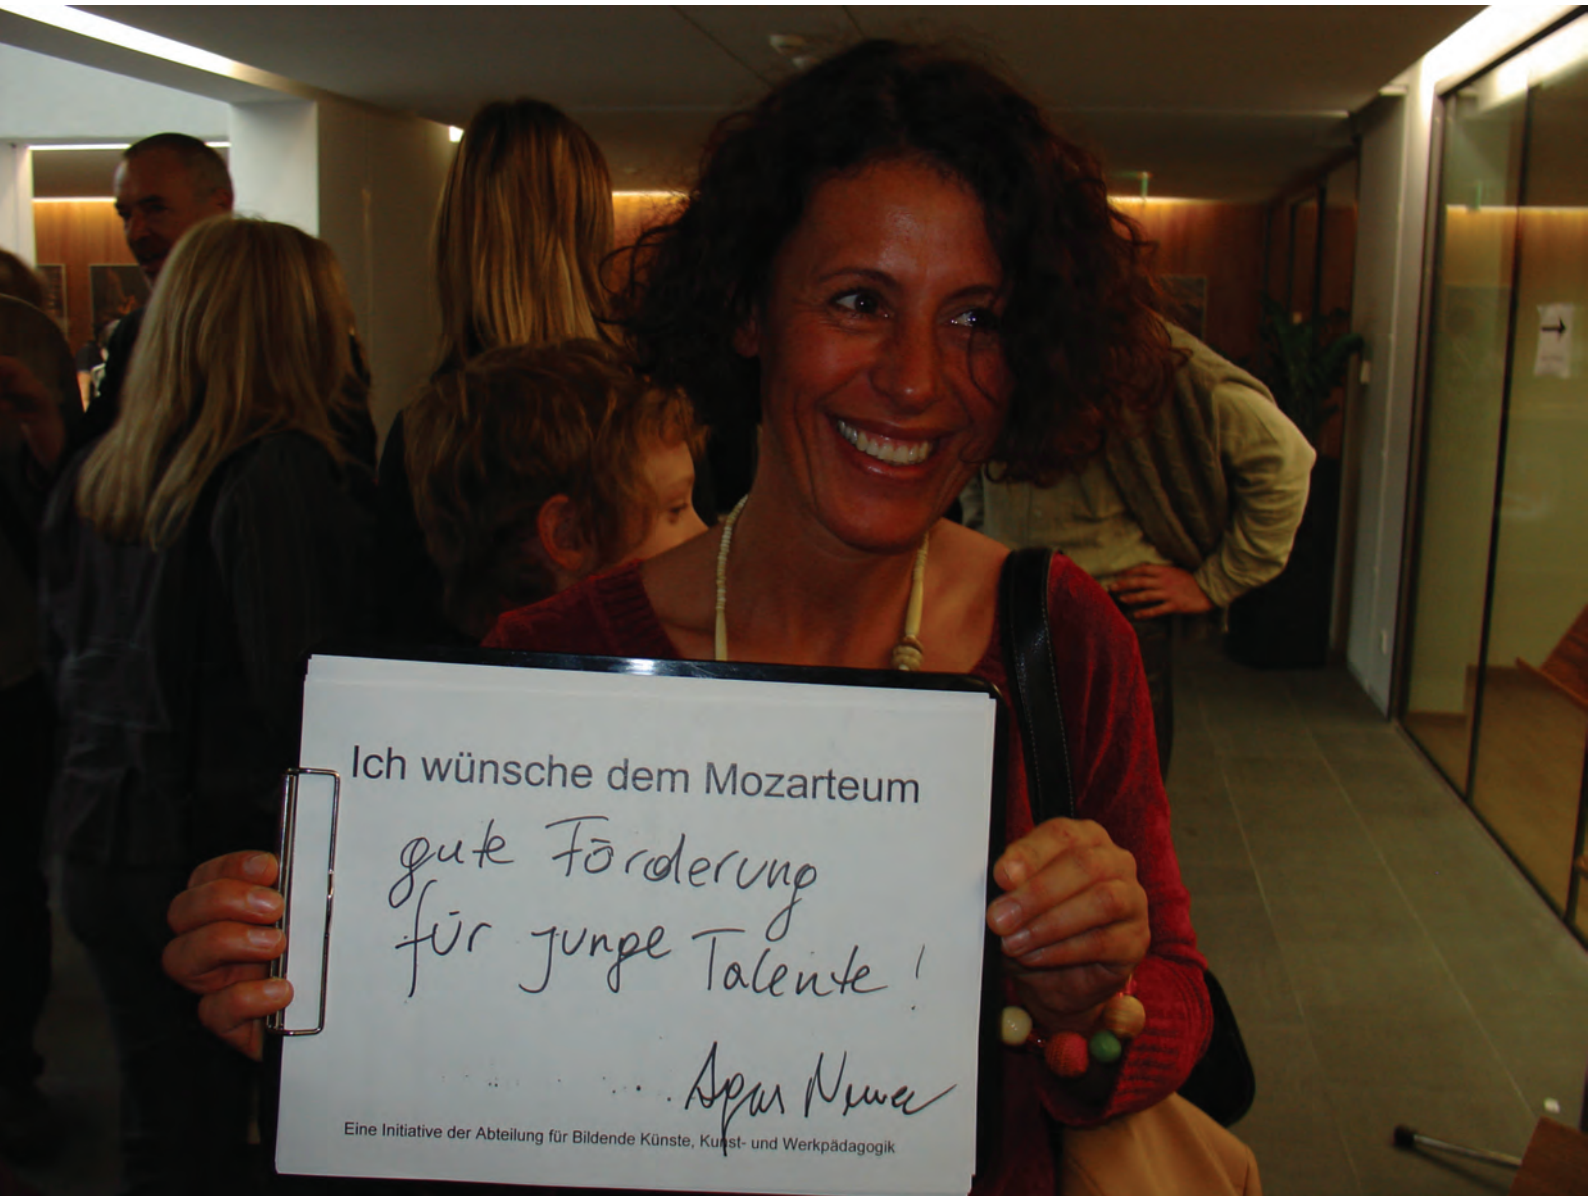 Ich wünsche dem Mozarteum
gute Förderung
für junge Talente!
Eine Initiative der Abteilung für Bildende Künste, Kunst- und Werkpädagogik